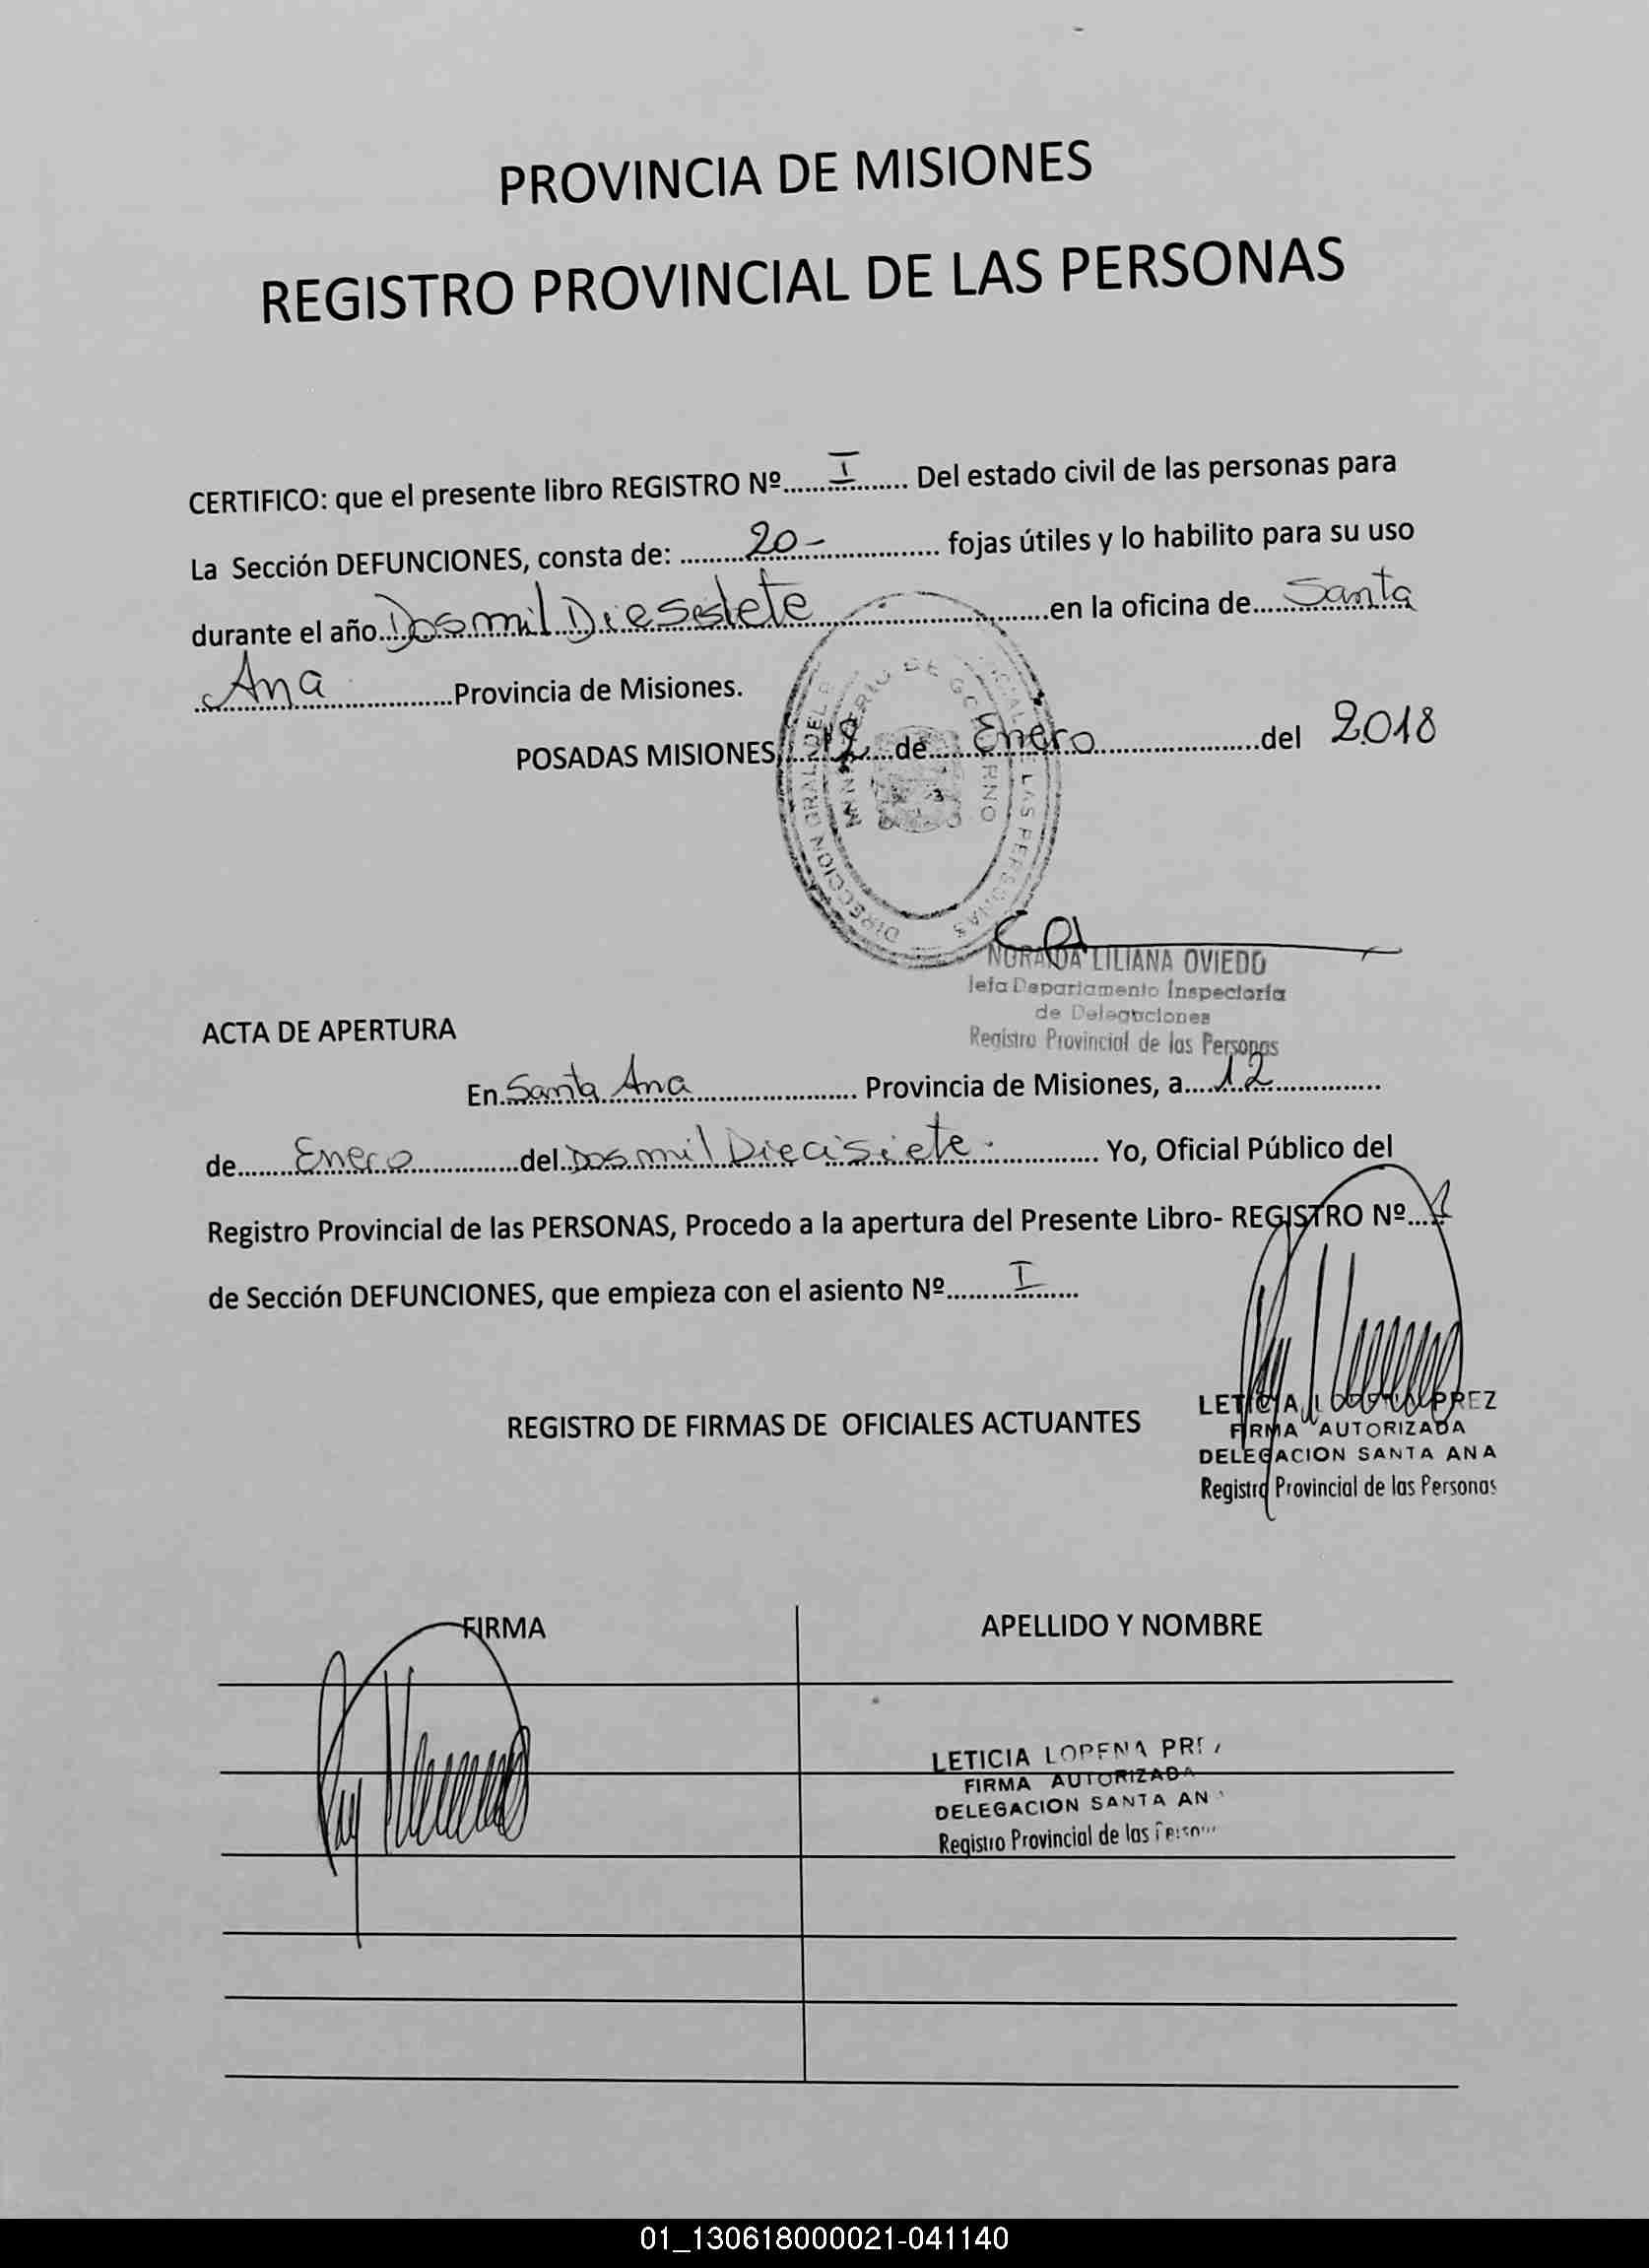 PROVINCIA DE MISIONES
REGISTRO PROVINCIAL DE LAS PERSONAS
CERTIFICO: que el presente libro REGISTRO Nº......I....... Del estado civil de las personas para
La Sección DEFUNCIONES, consta de: ........20-............ fojas útiles y lo habilito para su uso
durante el año...Dosmil Diesesiete..............en la oficina de....Santa
Ana..............Provincia de Misiones.
POSADAS MISIONES,.........de.....Enero....................del 2018
DIRECCION GRAL DEL LAS PERSONAS
MINISTERIO DE GOBIERNO
NORAIDA LILIANA OVIEDO
Jefa Departamento Inspectoría
de Delegaciones
Registro Provincial de las Personas
ACTA DE APERTURA
En.Santa Ana.................. Provincia de Misiones, a....12............
de.......Enero.............del..Dosmil Diecisiete.............. Yo, Oficial Público del
Registro Provincial de las PERSONAS, Procedo a la apertura del Presente Libro- REGISTRO Nº.....
de Sección DEFUNCIONES, que empieza con el asiento Nº........I.......
LETICIA LORENA PREZ
FIRMA AUTORIZADA
DELEGACION SANTA ANA
Registro Provincial de las Personas
REGISTRO DE FIRMAS DE OFICIALES ACTUANTES
FIRMA APELLIDO Y NOMBRE
LETICIA LORENA PRE
FIRMA AUTORIZADA
DELEGACION SANTA AN
Registro Provincial de las Person
01_130618000021-041140